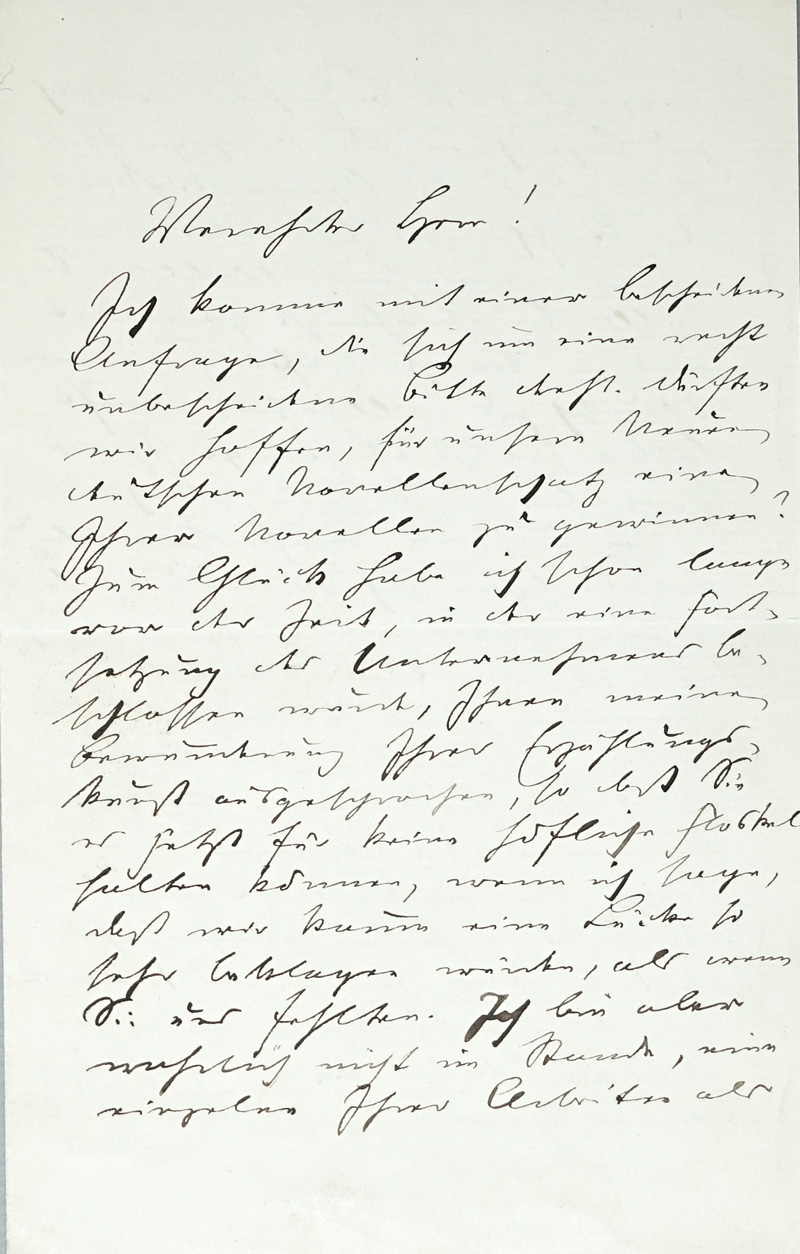 Verehrter Herr!
Ich komme mit einer bescheidenen
Anfrage, die sich um eine recht
unbescheidene Bitte dreht. Dürften
wir hoffen, für unsern Neuen
deutschen Novellenschatz eine
Ihrer Novellen zu gewinnen?
Zum Glück habe ich schon lange
vor der Zeit, in der eine Fort-
setzung des Unternehmens be-
schlossen wurde, Ihnen meine
Bewunderung Ihrer Erzählungs-
kunst ausgesprochen, so daß Sie
es jetzt für keine höfliche Floskel
halten können, wenn ich sage,
daß wir kaum eine Lücke so
sehr beklagen würden, als wenn
Sie uns fehlten. Ich bin aber
wahrlich nicht im Stande, eine
einzelne Ihrer Arbeiten als